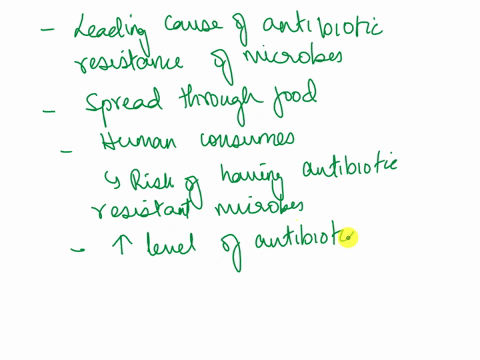 - Leading cause of antibiotic
resistance of microbes
- Spread through food
- Human consumes
↳ Risk of having antibiotic
resistant microbes
- ↑ level of antibioti